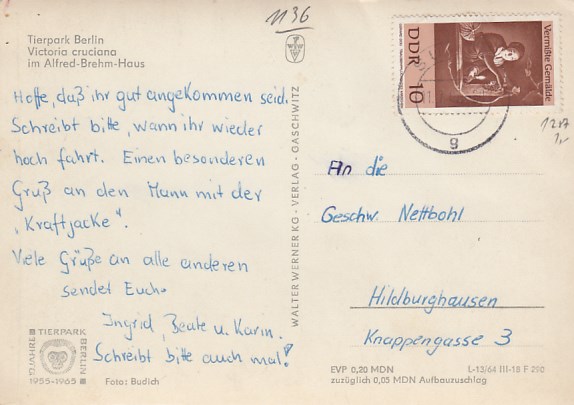 1136
Tierpark Berlin
Victoria cruciana
im Alfred-Brehm-Haus
Hoffe, daß ihr gut angekommen seid.
Schreibt bitte, wann ihr wieder
hoch fahrt. Einen besonderen
Gruß an den Mann mit der
„Kraftjacke".
Viele Grüße an alle anderen
sendet Euch
Ingrid, Beate u. Karin.
Schreibt bitte auch mal!
10 JAHRE TIERPARK BERLIN
1955-1965
Foto: Budich
WALTER WERNER KG · VERLAG · GASCHWITZ
Vermißte Gemälde
DDR 10
8
1217
1,-
An die
Geschw. Nettbohl
Hildburghausen
Knappengasse 3
EVP 0,20 MDN
zuzüglich 0,05 MDN Aufbauzuschlag
L-13/64 III-18 F 290